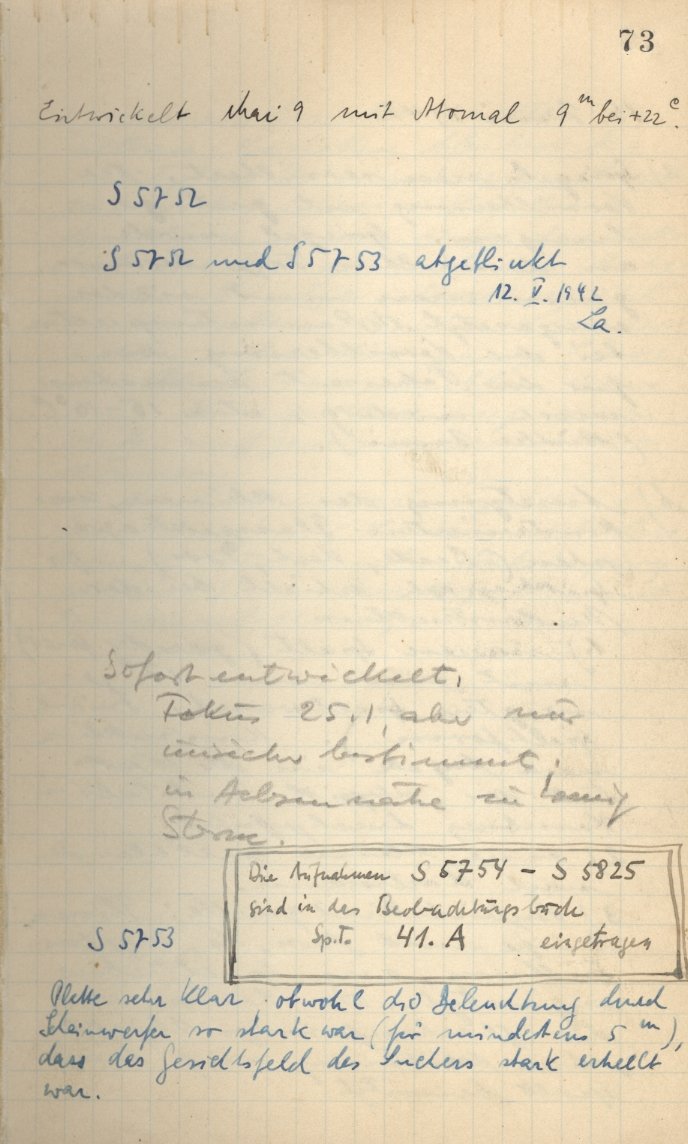 73
Entwickelt Mai 9 mit Atomal 9ᵐ bei +22°.
S 5752
S 5752 und S 5753 abgeblinkt
12. V. 1942
La.
Sofort entwickelt,
Fokus 25.1, aber nur
unsicher bestimmt;
in Achsennähe zu wenig
Sterne.
Die Aufnahmen S 5754 – S 5825
sind in das Beobachtungsbuch
Sp.T. 41. A eingetragen
S 5753
Platte sehr klar obwohl die Beleuchtung durch
Scheinwerfer so stark war (für mindestens 5 ᵐ),
dass das Gesichtsfeld des Suchers stark erhellt
war.